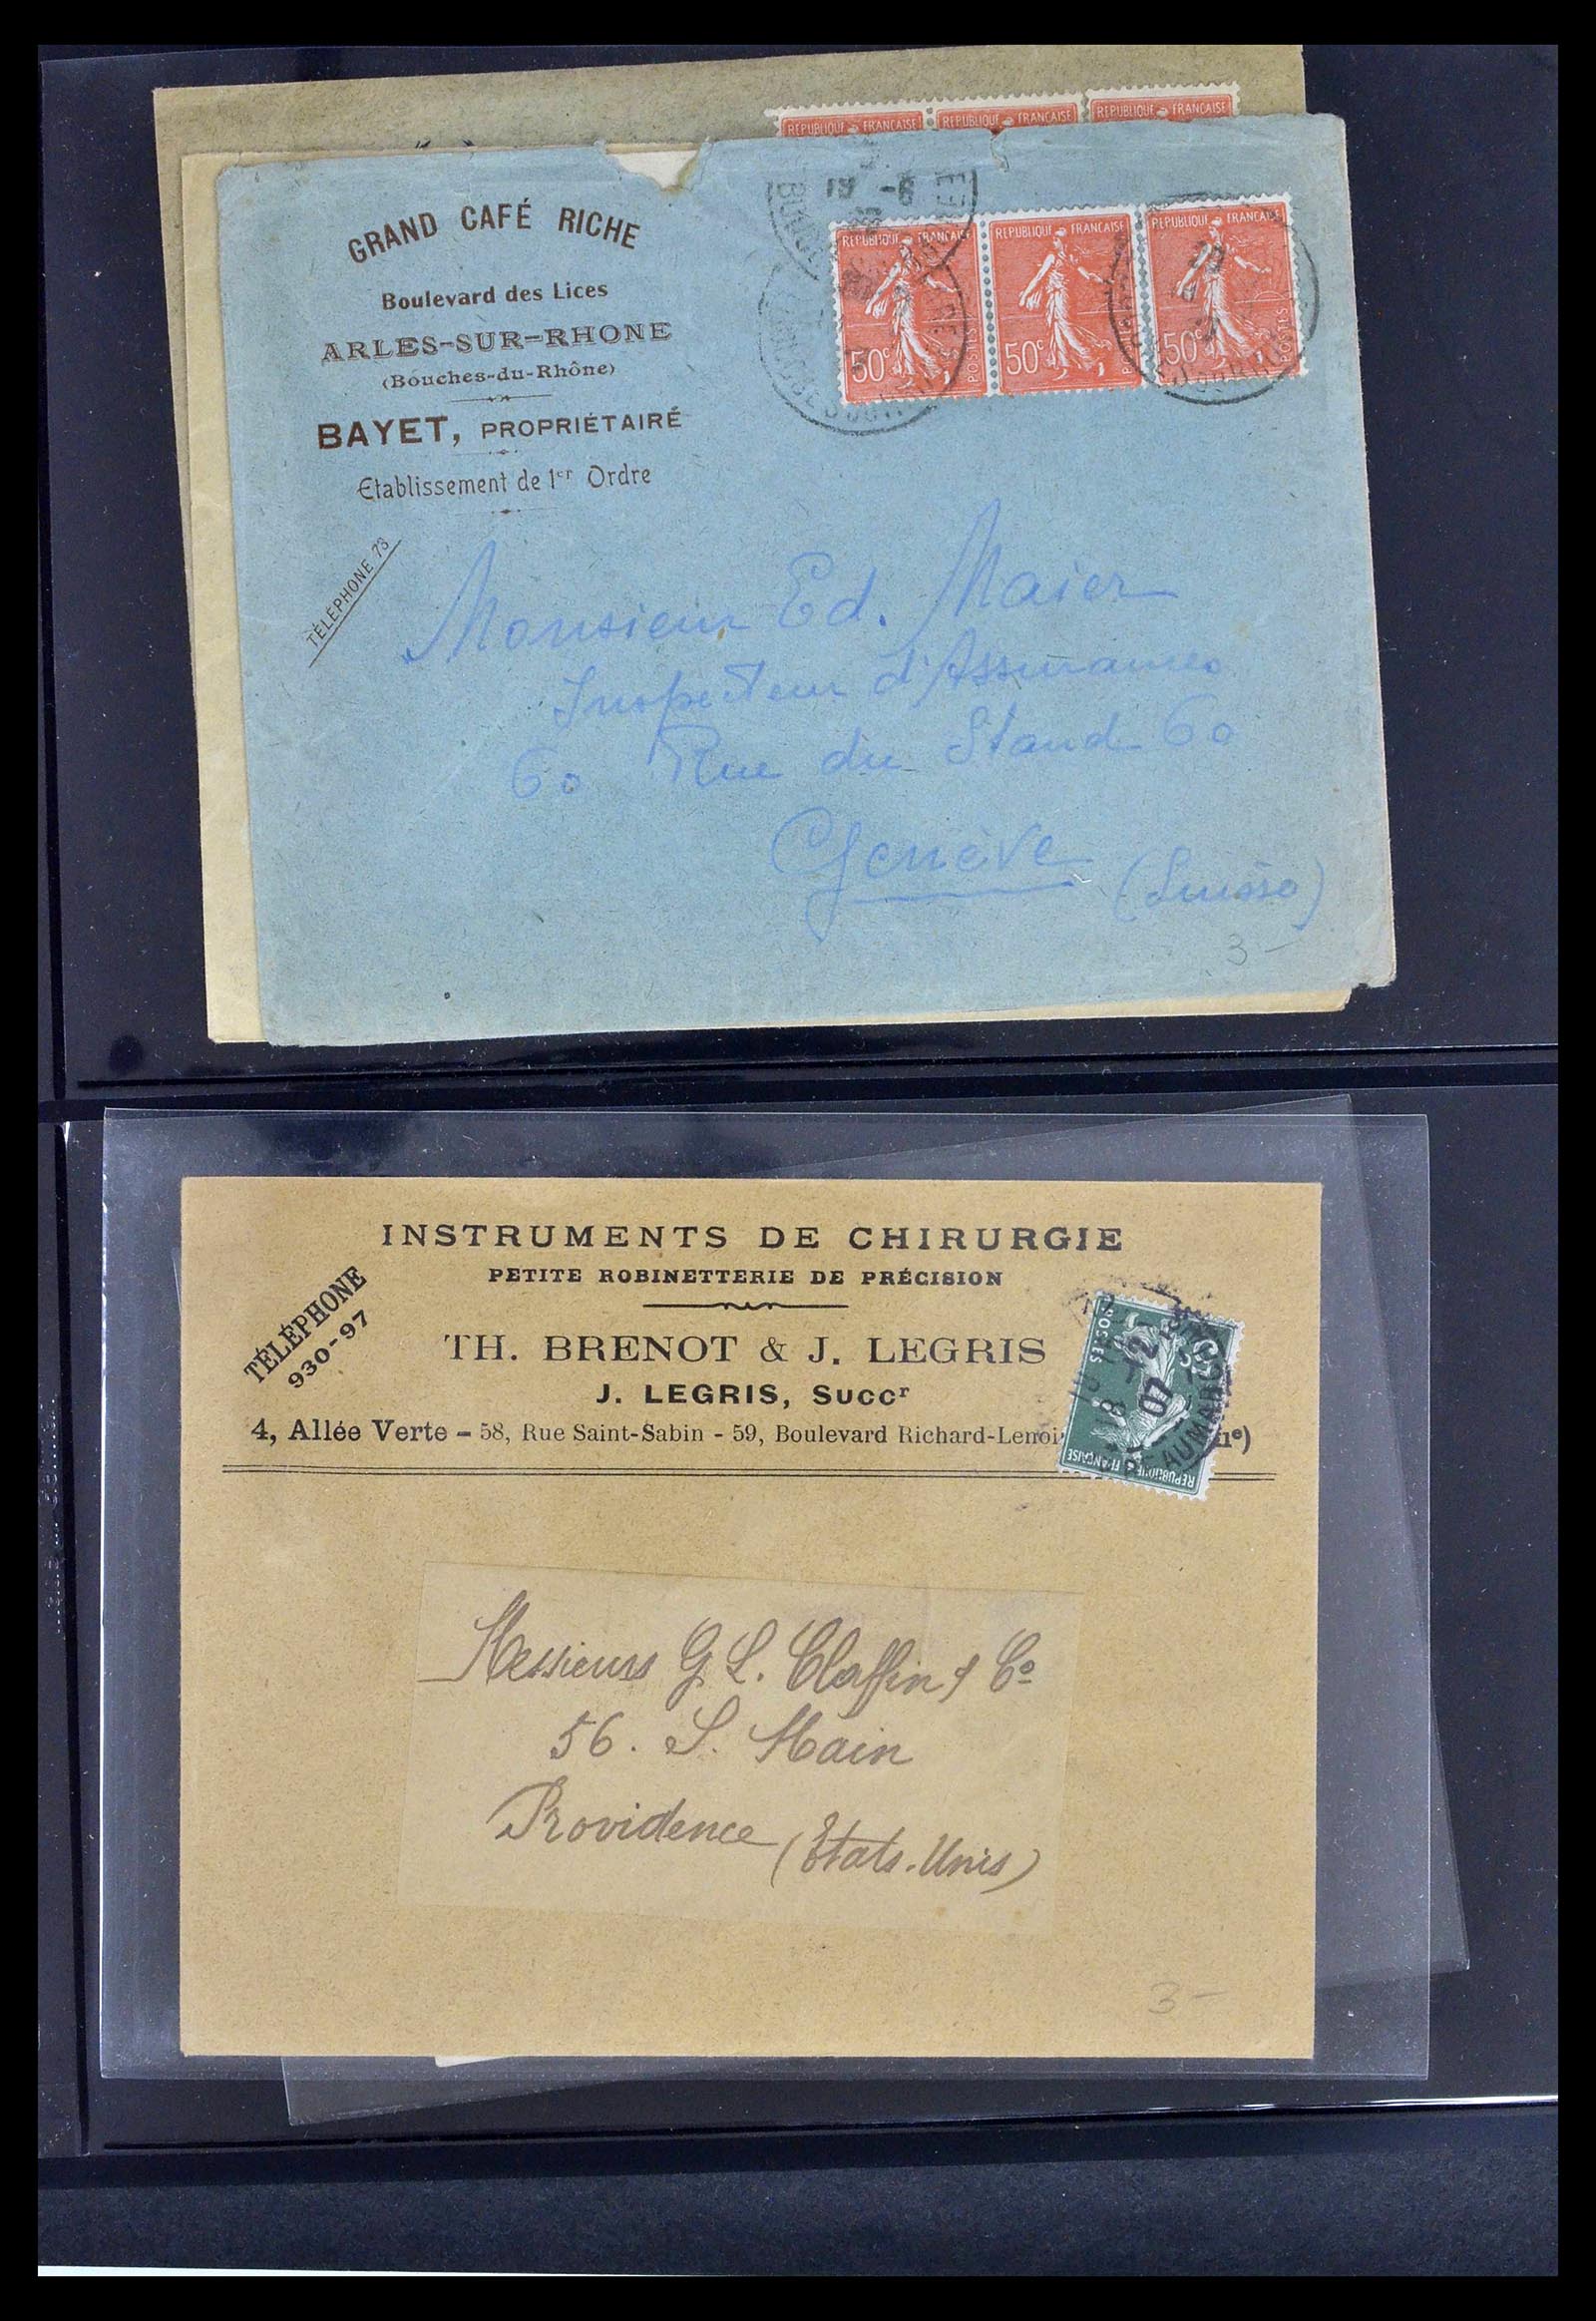 REPUBLIQUE FRANCAISE REPUBLIQUE FRANCAISE REPUBLIQUE FRANCAISE
GRAND CAFÉ RICHE
Boulevard des Lices
ARLES-SUR-RHONE
(Bouches-du-Rhône)
BAYET, PROPRIÉTAIRE
Etablissement de 1er Ordre
TÉLÉPHONE 73
19 -6
REPUBLIQUE FRANCAISE
50c
POSTES
REPUBLIQUE FRANCAISE
50c
REPUBLIQUE FRANCAISE
50c
POSTES
Monsieur Ed. Maier
Inspecteur d'Assurances
60 Rue du Stand 60
Genève (Suisse)
3-
INSTRUMENTS DE CHIRURGIE
PETITE ROBINETTERIE DE PRÉCISION
TÉLÉPHONE
930-97
TH. BRENOT & J. LEGRIS
J. LEGRIS, Succr
4, Allée Verte - 58, Rue Saint-Sabin - 59, Boulevard Richard-Lenoi 11e)
POSTES
5c
REPUBLIQUE FRANÇAISE
18 -12
07
Messieurs G. L. Claflin & Co
56. S. Main
Providence (Etats-Unis)
3-